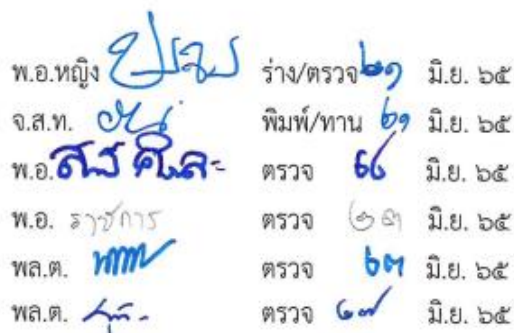 พ.อ.หญิง ร่าง/ตรวจ ๒๑ มิ.ย. ๖๕
จ.ส.ท. พิมพ์/ทาน ๒๑ มิ.ย. ๖๕
พ.อ. ตรวจ มิ.ย. ๖๕
พ.อ. ราชการ ตรวจ ๒๓ มิ.ย. ๖๕
พล.ต. ตรวจ ๒๓ มิ.ย. ๖๕
พล.ต. ตรวจ ๒๗ มิ.ย. ๖๕